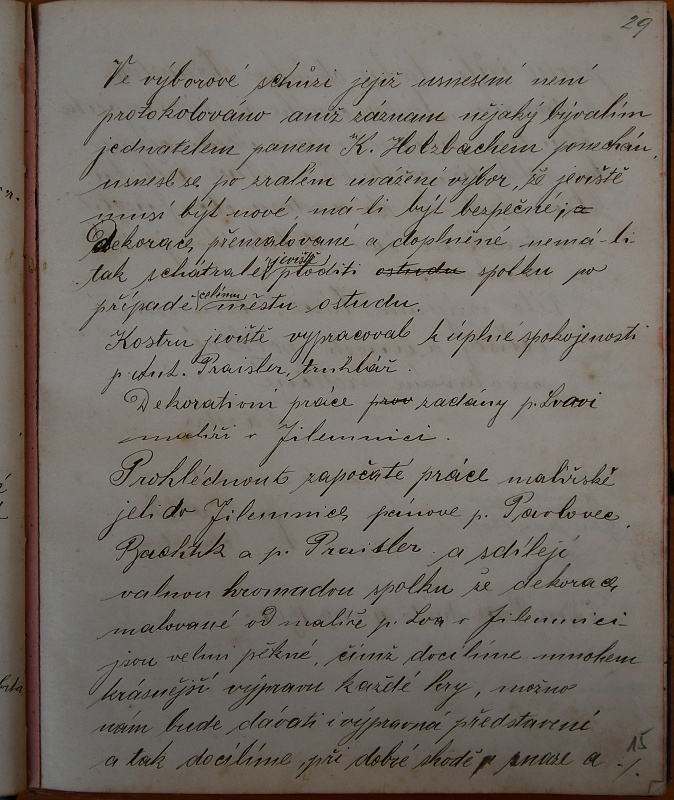 29
Ve výborové schůzi jejíž usnesení není
protokolováno aniž záznam nějaký bývalím
jednatelem panem K. Holzbachem ponechán,
usnesl se po zralém uvážení výbor, že jeviště
musí být nové, má-li být bezpečné, a
Dekorace přemalované a doplněné nemá-li
tak schátralé jeviště ploditi ostudu spolku po
případě celému městu ostudu.
Kostru jeviště vypracoval k úplné spokojenosti
p. Ant. Praisler, truhlář.
Dekorativní práce prov zadány p. Lvovi
malíři v Jilemnici.
Prohlédnout započaté práce malířské
jeli do Jilemnice pánové p. Pavlovec,
a p. Praisler a sdílejí
valnou hromadou spolku že dekorace
malované od malíře p. Lva v Jilemnici
jsou velmi pěkné, čímž docílíme mnohem
krásnější výpravu každé hry, možno
nám bude dávati i výpravná představení
a tak docílíme, při dobré shodě, snaze a ./.
15